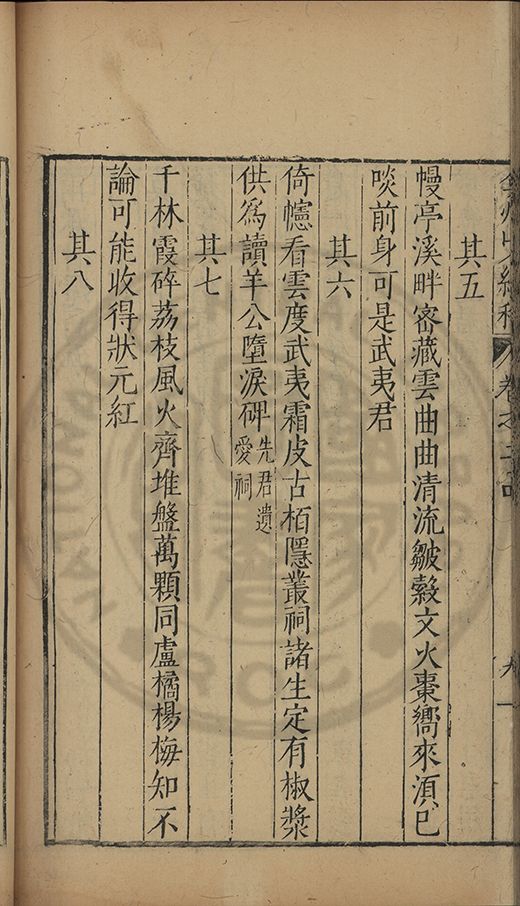 其五
幔亭溪畔密藏雲曲曲清流皺縠文火棗嚮來湏已
啖前身可是武夷君
其六
倚幰看雲度武夷霜皮古栢隱叢祠諸生定有椒漿
供爲讀羊公墮淚碑先君遺愛祠
其七
千林霞碎荔枝風火齊堆盤萬顆同盧橘楊梅知不
論可能收得狀元紅
其八